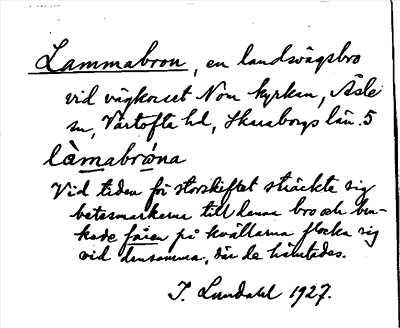 Lammabron, en landsvägsbro
vid vägkorset Norr kyrkan, Åsle
sn, Vartofta hd, Skaraborgs län. 5
làmabrǿna
Vid tiden för storskiftet sträckte sig
betesmarkerna till denna bro och bru-
kade fåren på kvällarna flocka sig
vid densamma, där de hämtades.
J. Lundahl 1927.